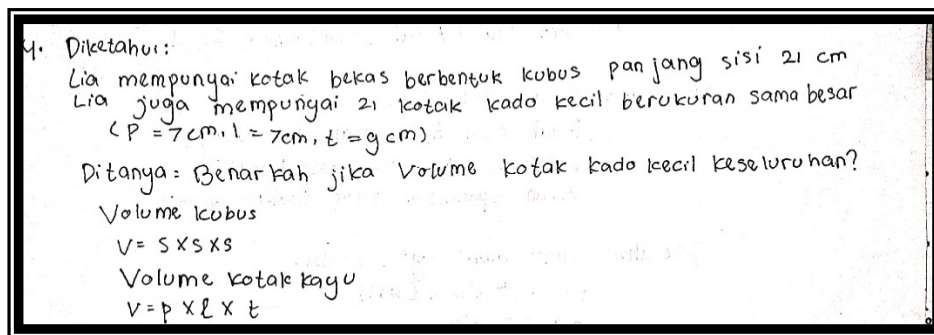 4. Diketahui:
Lia mempunyai kotak bekas berbentuk kubus panjang sisi 21 cm
Lia juga mempunyai 21 kotak kado kecil berukuran sama besar
(P = 7cm, l = 7cm, t = 9cm)
Ditanya: Benarkah jika Volume kotak kado kecil keseluruhan?
Volume kubus
V = S X S X S
Volume kotak kayu
V = p X l X t